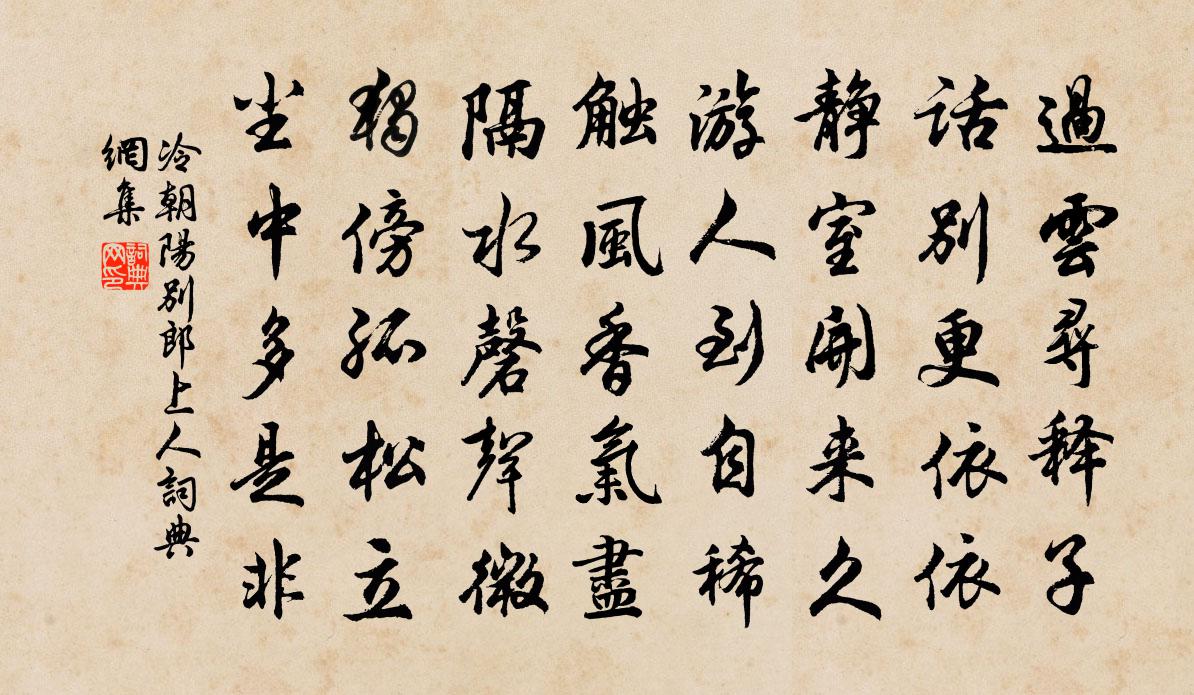 過雲尋释子
话别更依依
静室開来久
游人到自稀
触風香氣盡
隔水磬聲微
獨傍孤松立
尘中多是非
冷朝陽別郎上人詞典
網集
詞典
网印